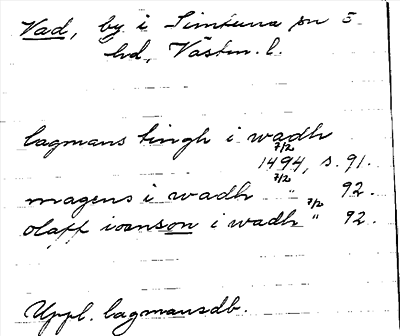 Vad, by i Simtuna sn S
hd, Västm. l.
lagmans tingh i wadh
7/2
1494, s. 91.
7/2
magens i wadh " 92.
olaff ioanson i wadh 7/2 " 92.
Uppl. lagmansdb.